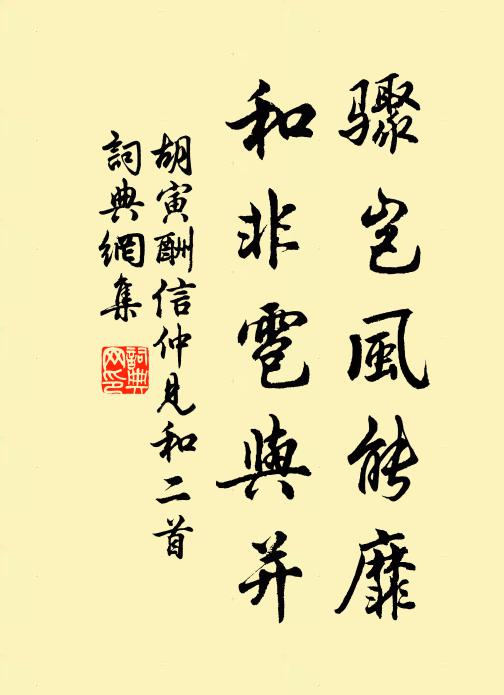 驟岂風能靡
和非雹與并
胡寅酬信仲見和二首
詞典網集
詞典网印